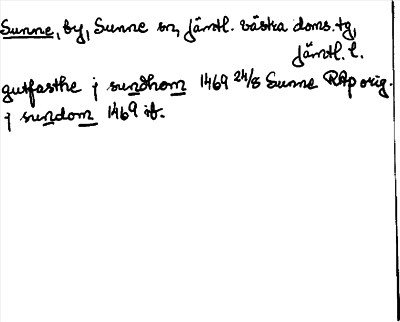 Sunne, by, Sunne sn, Jämtl. västra doms. tg,
Jämtl. l.
gutfasthe j sundhom 1469 24/8 Sunne RAp orig.
j sundom 1469 ib.